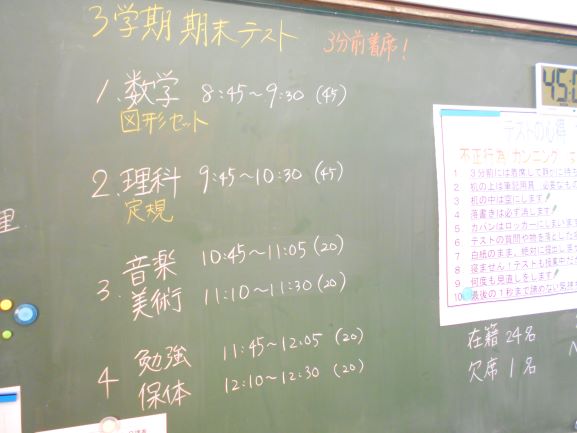 3学期 期末テスト
3分前着席!
1. 数学 8:45~9:30 (45)
図形セット
2. 理科 9:45~10:30 (45)
定規
3. 音楽 10:45~11:05 (20)
美術 11:10~11:30 (20)
4 勉強 11:45~12:05 (20)
保体 12:10~12:30 (20)
里
45:0
テストの心得
不正行為 カンニング
1 3分前には着席して静かに待ち
2 机の上は筆記用具 必要なも
3 机の中は空にします
4 落書きは必ず消します
5 カバンはロッカーにしまい
6 テストの質問や物を落とした
7 白紙のまま、絶対に提出し
8 寝ません!テストも授業中だ
9 何度も見直しをします
10 最後の1秒まで諦めない気持
在籍 24名
欠席 1名